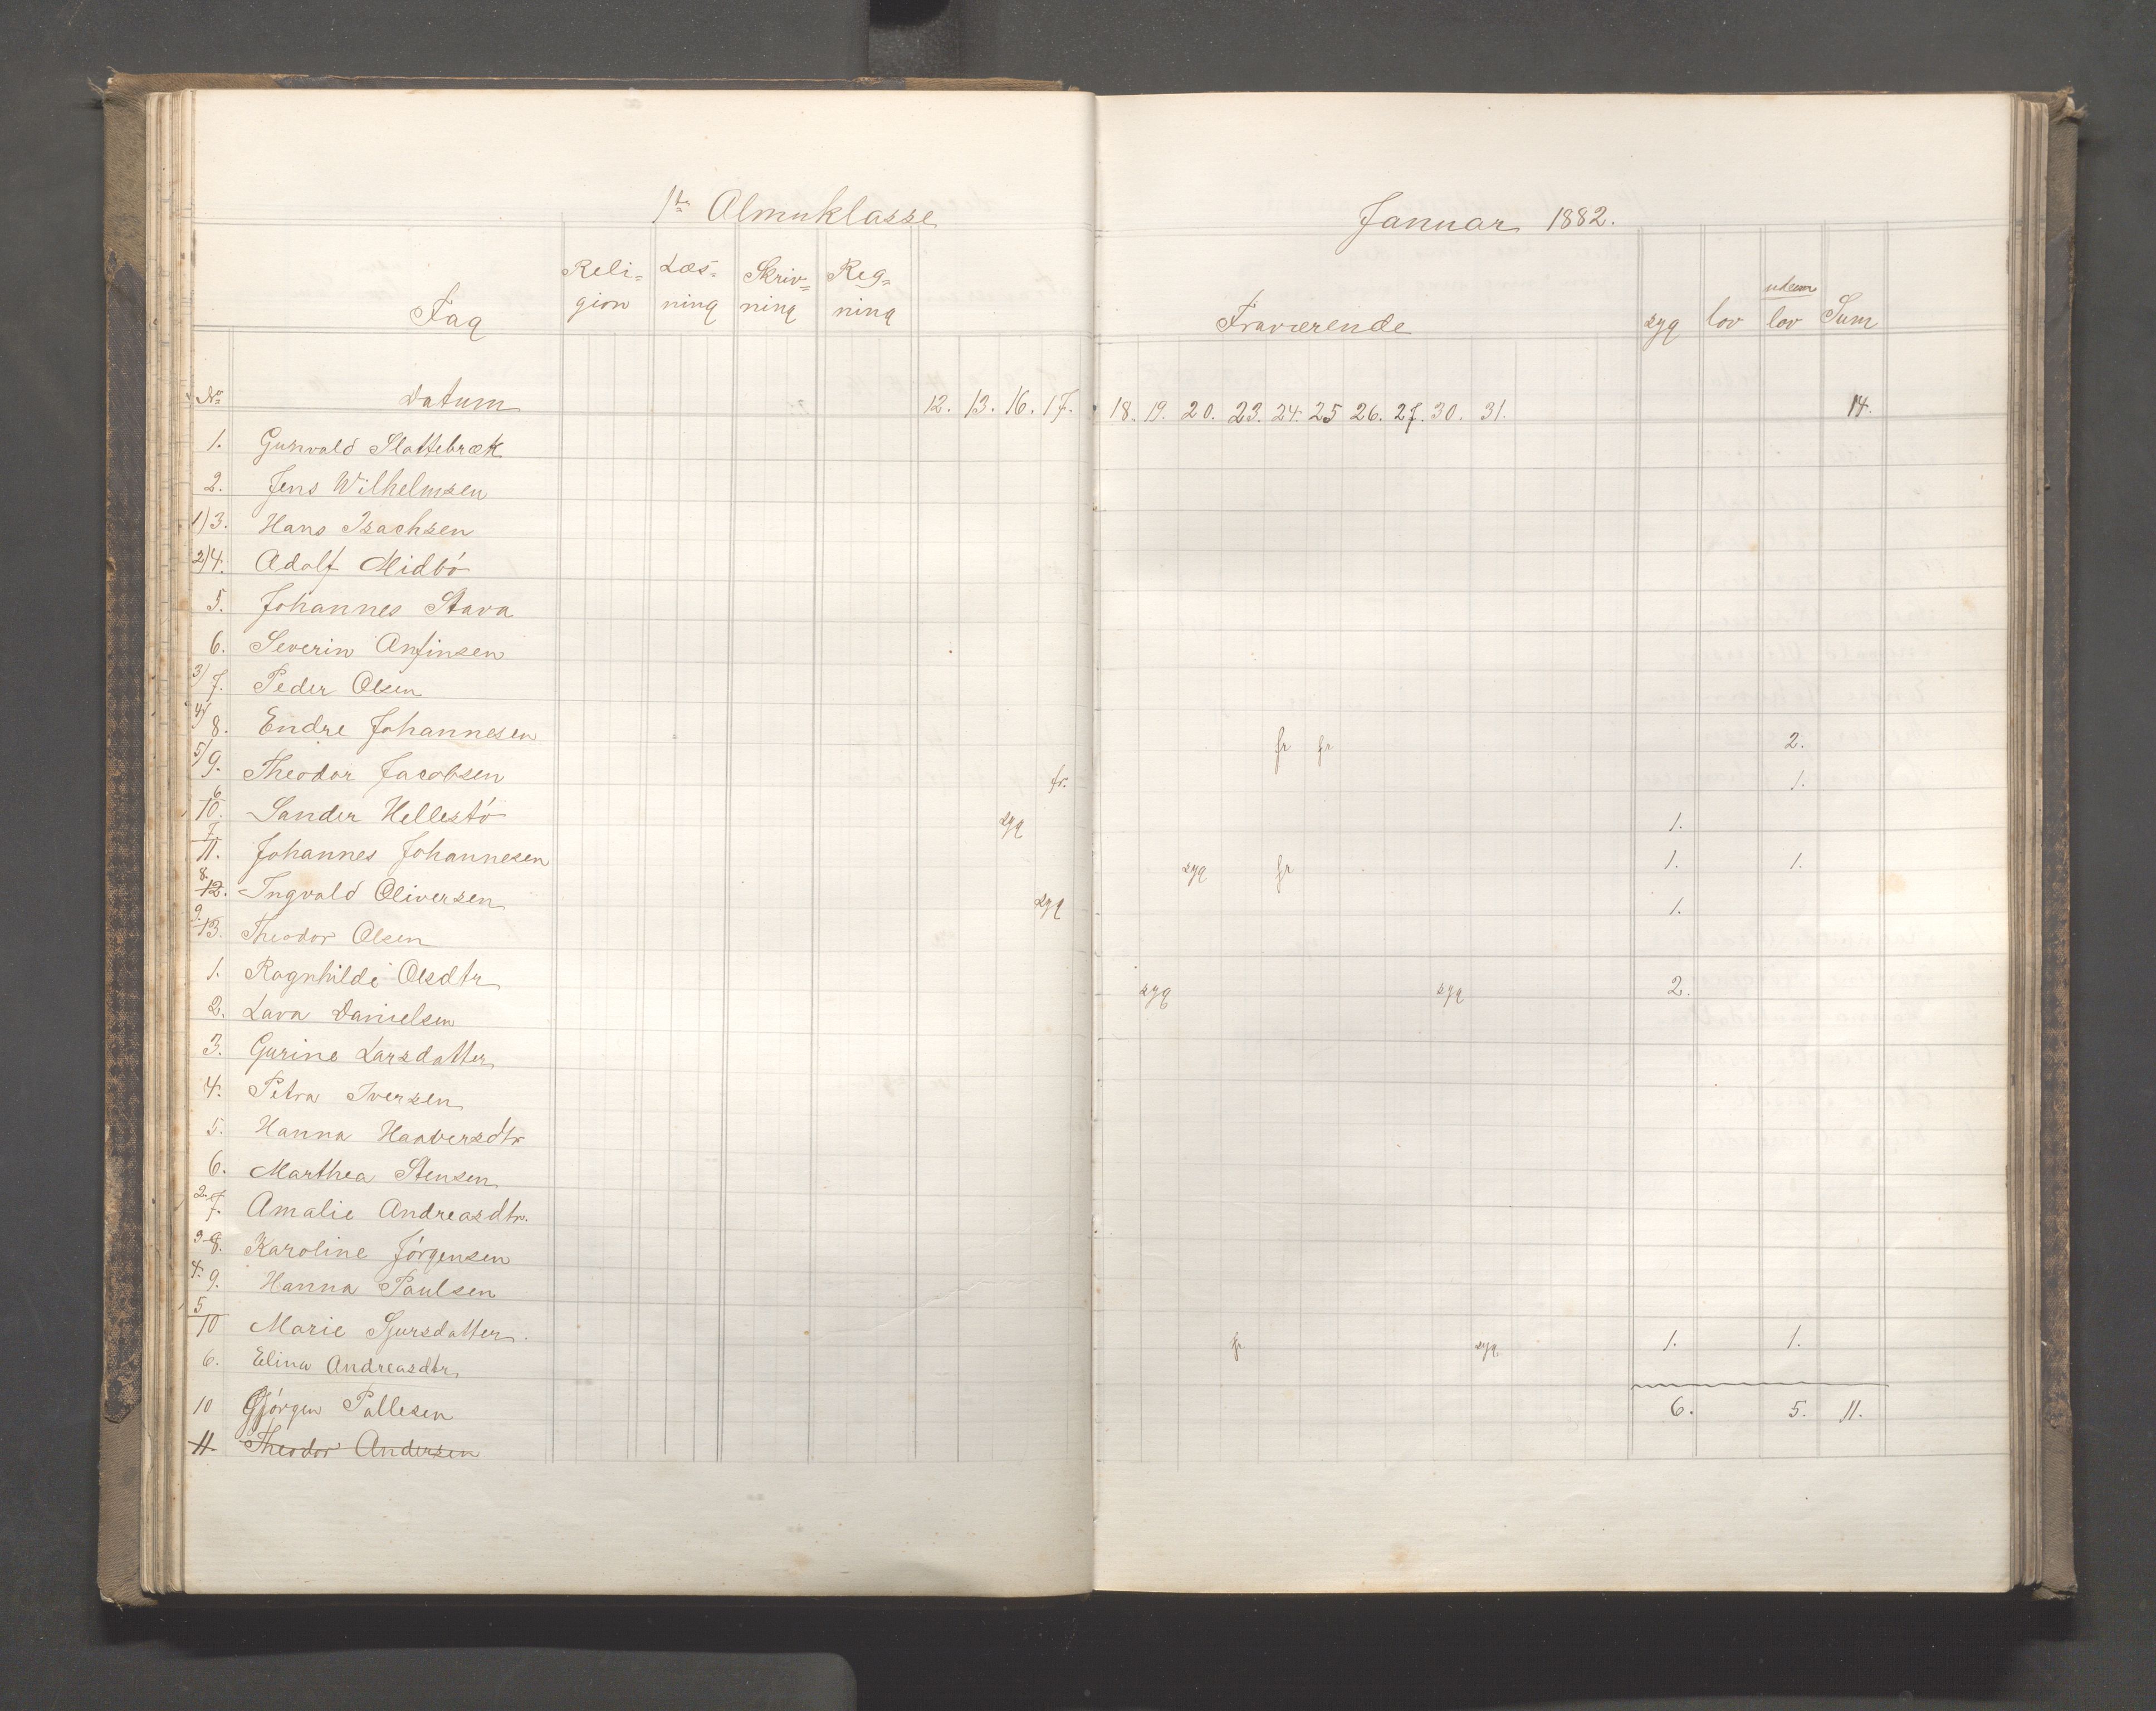 1ste Almuklasse Januar 1882.
Fag Reli=gion Læs=ning Skriv=ning Reg=ning Fraværende syg lov uden lov Sum
No Datum 12. 13. 16. 17. 18. 19. 20. 23. 24. 25 26. 27. 30. 31. 14.
1. Gunvald Slottebræk
2. Jens Wilhelmsen
1) 3. Hans Isachsen
2) 4. Adolf Midbó
5. Johannes Stava
6. Severin Anfinsen
3) 7. Peder Olsen
4) 8. Endre Johannesen fr fr 2.
5) 9. Theodor Jacobsen fr. 1.
6 10. Sander Hellestó syg 1.
7 11. Johannes Johannesen syg fr 1. 1.
8. 12. Ingvald Oliversen syg 1.
9. 13. Theodor Olsen
1. Ragnhilde Olsdtr syg syg 2.
2. Lava Danielsen
3. Gurine Larsdatter
4. Petra Iversen
5. Hanna Haaversdtr
6. Marthea Stensen
2. 7. Amalie Andreasdtr.
3. 8. Karoline Jórgensen
4. 9. Hanna Paulsen
5 10 Marie Sjursdatter. fr syg. 1. 1.
6. Elina Andreasdtr.
10 Gjórgen Pallesen 6. 5. 11.
11 Theodor Andersen